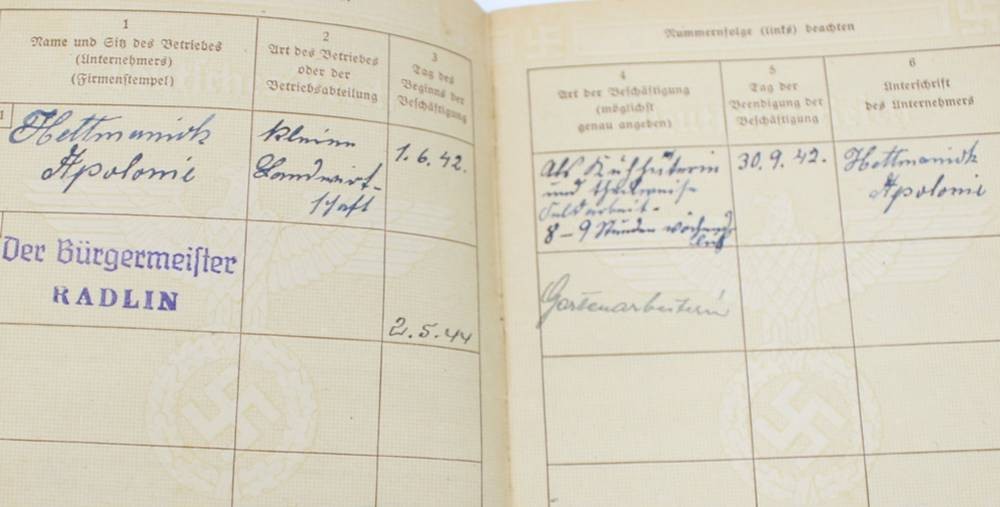 1
Name und Sitz des Betriebes
(Unternehmers)
(Firmenstempel)
2
Art des Betriebes
oder der
Betriebsabteilung
3
Tag des
Beginns der
Beschäftigung
1
Hettmanick
Apolonie
kleine
Landwirt-
schaft
1.6.42.
Der Bürgermeister
RADLIN
2.5.44
Nummernfolge (links) beachten
4
Art der Beschäftigung
(möglichst
genau angeben)
5
Tag der
Beendigung der
Beschäftigung
6
Unterschrift
des Unternehmers
Als Kuhhüterin
und theilweise
Feldarbeit-
8-9 Stunden wöchent
lich
30.9.42.
Hettmanick
Apolonie
Gartenarbeiterin